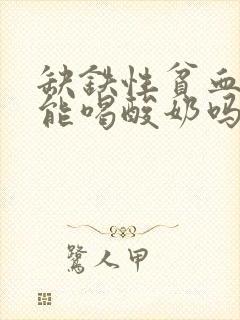 缺铁性贫血
能喝酸奶吗
鹭人甲